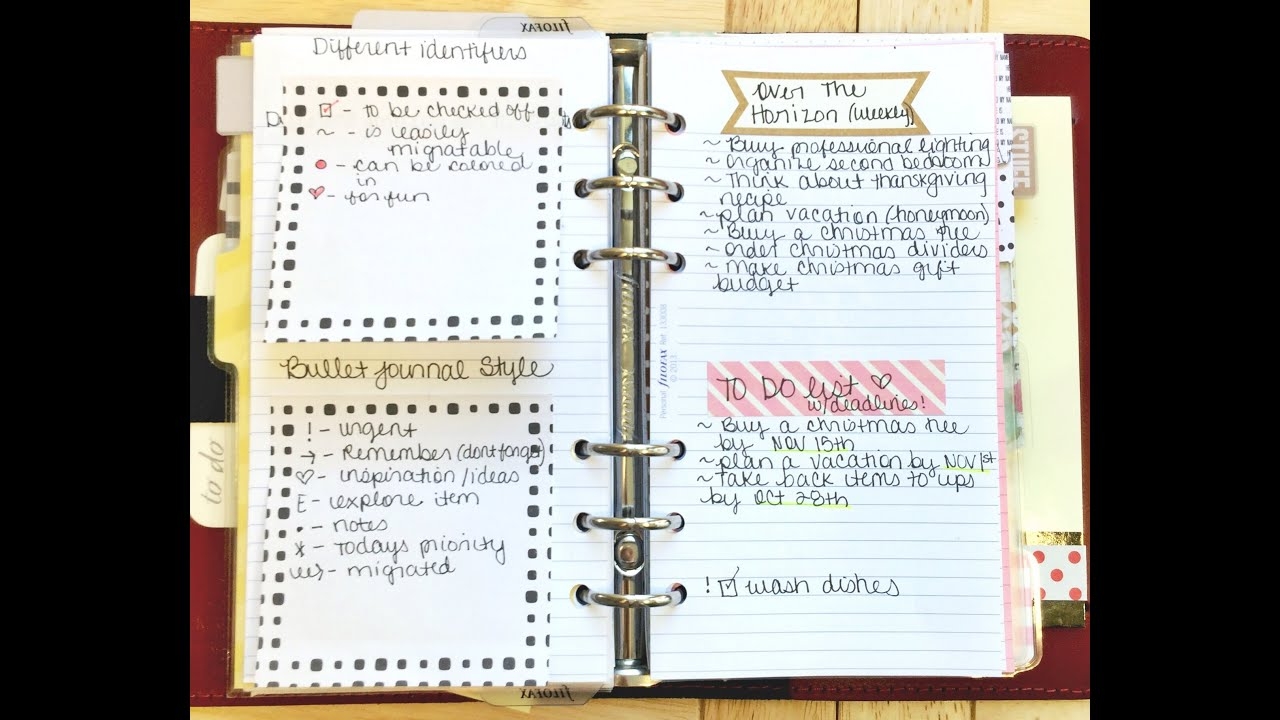 FILOFAX
Different identifiers
☑ - to be checked off
~ - is easily
migratable
● - can be colored
in
♡ - for fun
Bullet Journal Style
! - urgent
→ - Remember (dont forget)
♡ - inspiration/ideas
E - explore item
• - notes
x - Todays priority
- migrated
to do
FILOFAX
Over The
Horizon (weekly)
~ Buy professional lighting
~ Organize second bedroom
~ Think about thanksgiving
recipe
~ plan vacation (honeymoon)
~ Buy a christmas tree
~ order christmas dividers
~ make christmas gift
budget
Personal FILOFAX Ref. 133008
© 2013
TO DO list ♡
w/deadlines!
~ Buy a christmas tree
by NOV 15th
~ plan a vacation by NOV 1st
~ take back items to ups
by Oct 28th
! ☑ wash dishes
STUFF